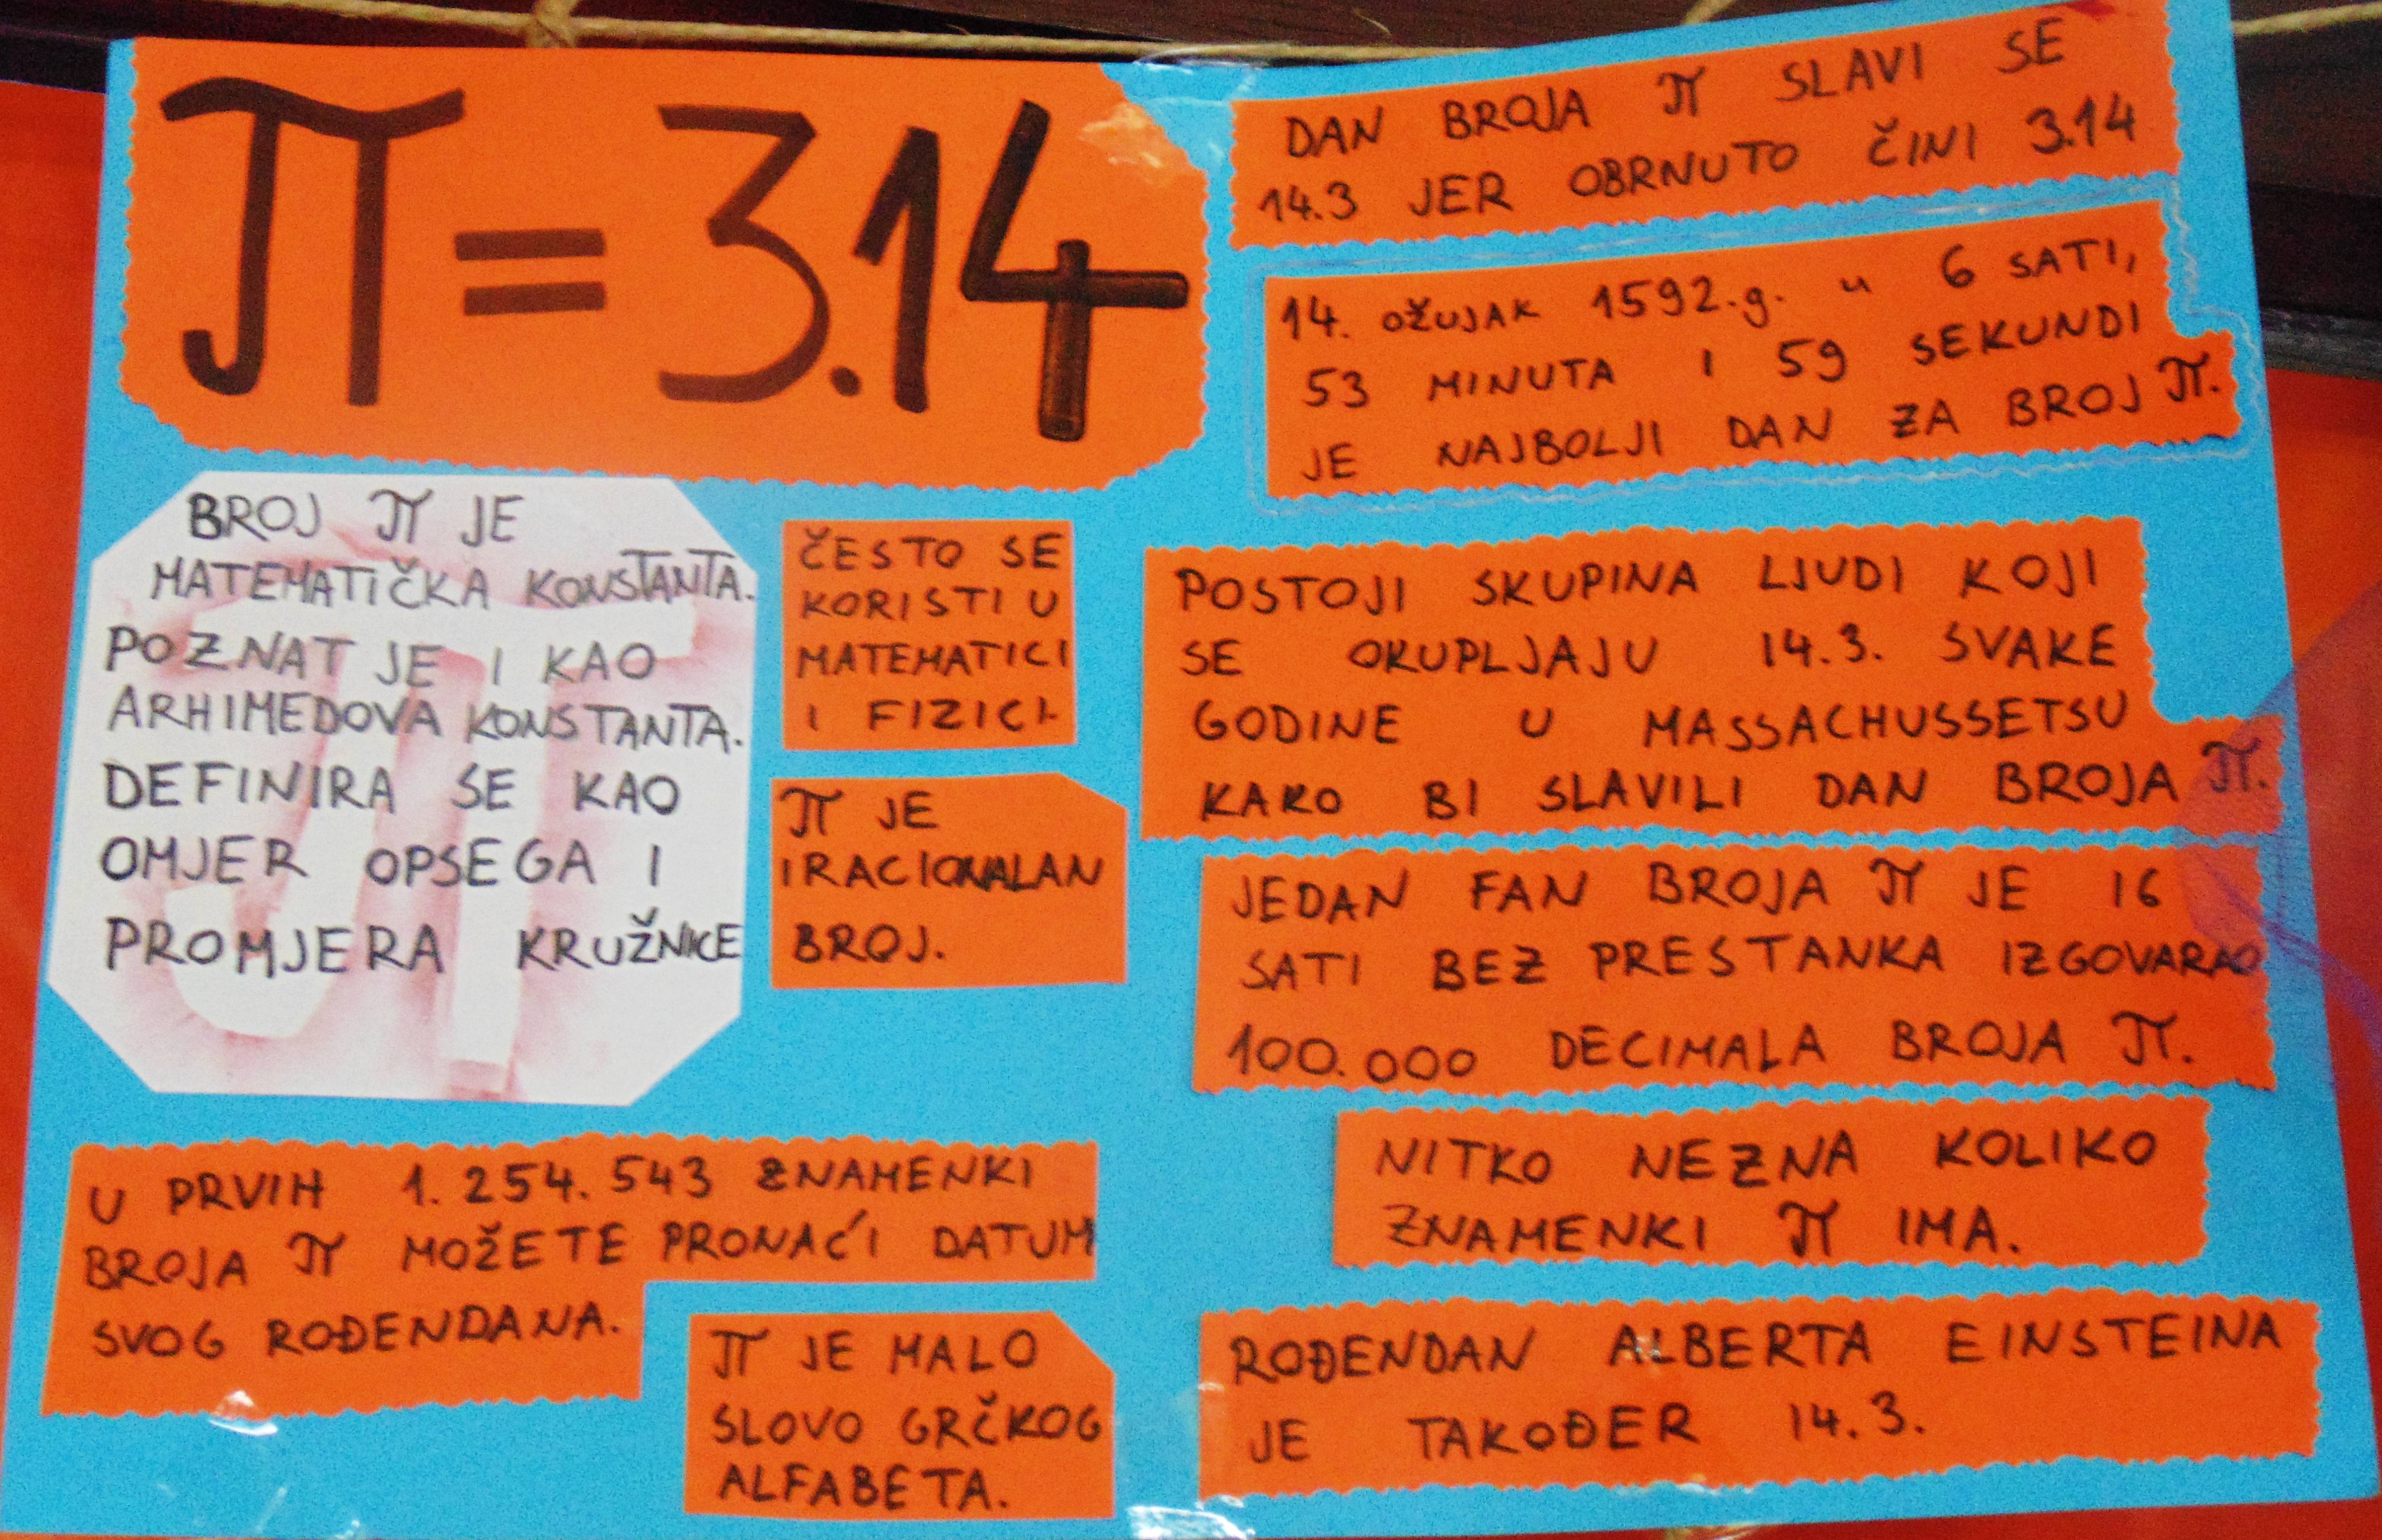 π = 3.14
BROJ π JE
MATEMATIČKA KONSTANTA.
POZNAT JE I KAO
ARHIMEDOVA KONSTANTA.
DEFINIRA SE KAO
OMJER OPSEGA I
PROMJERA KRUŽNICE
ČESTO SE
KORISTI U
MATEMATICI
I FIZICI.
π JE
IRACIONALAN
BROJ.
U PRVIH 1.254.543 ZNAMENKI
BROJA π MOŽETE PRONAĆI DATUM
SVOG ROĐENDANA.
π JE MALO
SLOVO GRČKOG
ALFABETA.
DAN BROJA π SLAVI SE
14.3 JER OBRNUTO ČINI 3.14
14. OŽUJAK 1592.g. u 6 SATI,
53 MINUTA I 59 SEKUNDI
JE NAJBOLJI DAN ZA BROJ π.
POSTOJI SKUPINA LJUDI KOJI
SE OKUPLJAJU 14.3. SVAKE
GODINE U MASSACHUSSETSU
KAKO BI SLAVILI DAN BROJA π.
JEDAN FAN BROJA π JE 16
SATI BEZ PRESTANKA IZGOVARAO
100.000 DECIMALA BROJA π.
NITKO NEZNA KOLIKO
ZNAMENKI π IMA.
ROĐENDAN ALBERTA EINSTEINA
JE TAKOĐER 14.3.